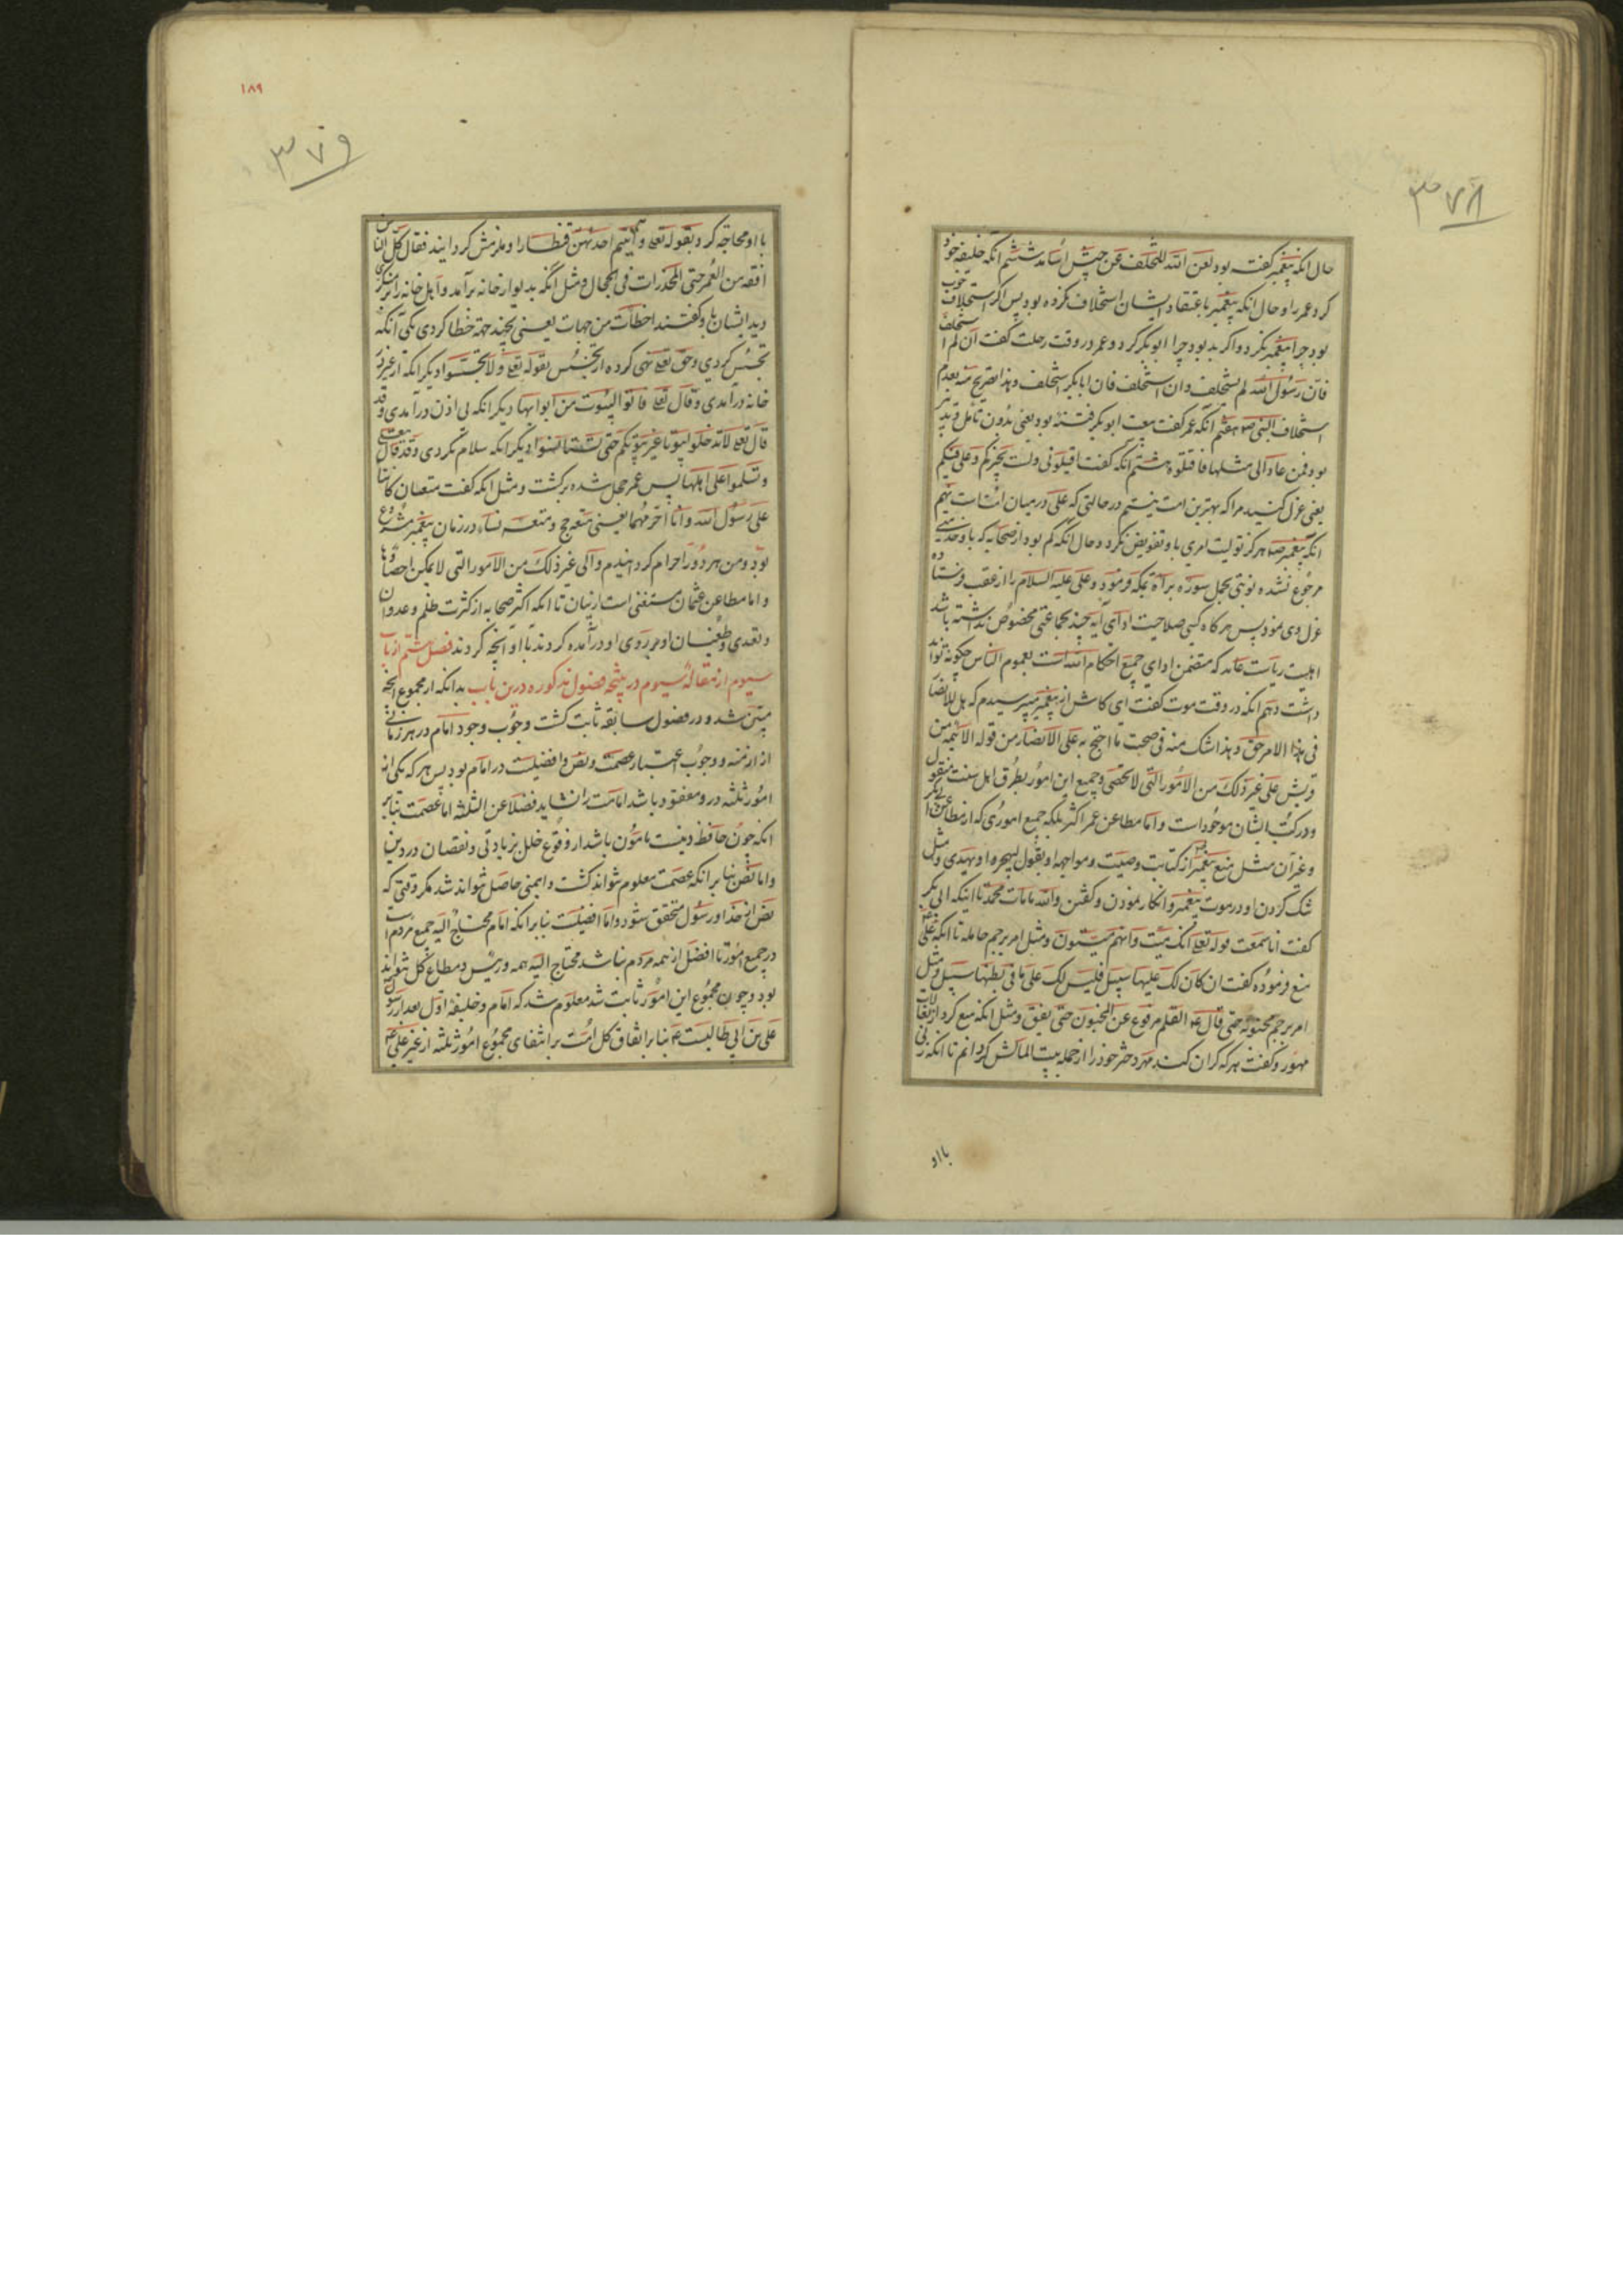 ٣٧٨
حال انکه پیغمبر گفته بود لعن الله المتخلف عن جیش اسامه ششم آنکه خلیفه خود
کرد عمر را و حال انکه پیغمبر باعتقاد ایشان استخلاف نکرده بود پس اکر استخلاف خوب
بود چرا پیغمبر نکرد و اکر بد بود چرا ابو بکر کرد و عمر در وقت رحلت گفت ان لم استخلف
فان رسول الله لم یستخلف و ان استخلف فان ابابکر استخلف و هذا تصریح منه بعدم
استخلاف النبی ص هفتم آنکه عمر کفت بیعت ابو بکر فتنه بود یعنی بدون تامل و تدبر
بود فمن عاد الی مثلها فاقتلوه هشتم انکه کفت اقیلونی و لست بخیرکم و علی فیکم
یعنی عزل کنید مرا که بهترین امت نیستم در حالتی که علی در میان امت است نهم
انکه پیغمبر ص هرکز تولیت امری باو تفویض نکرد و حال انکه کم بود از صحابه که باو خدمتی
مرجوع نشده نوبتی بحمل سوره برآة بمکه فرمود و علی علیه السلام را از عقب فرستاده
عزل وی نمود پس هرکاه کسی صلاحیت ادای آیه چند بجماعتی مخصوص نداشته باشد
اهلیت ریاست عامه که متضمن ادای جمیع احکام الله است بعموم الناس چکونه تواند
داشت دهم انکه در وقت موت کفت ای کاش از پیغمبر میپرسیدم که هل للانصار
فی هذا الامر حق و هذا شک منه فی صحت ما احتج به علی الانصار من قوله الائمه من
قریش علی غیر ذلک من الامور التی لا تحصی و جمیع این امور بطرق اهل سنت منقول
و در کتب ایشان موجود است و اما مطاعن عمر اکثر بلکه جمیع اموری که از مطاعن ابی بکر
و غیر آن مثل منع پیغمبر از کتابت وصیت و مواجهه او بقول لیهجر او یهذی و مثل
شک کردن او در موت پیغمبر و انکار نمودن و کفتن والله ما مات محمد تا اینکه ابی بکر
کفت اما سمعت قوله تعالی انک میت و انهم میتون و مثل امر برجم حامله تا انکه علی
منع فرموده کفت ان کان لک علیها سبیل فلیس لک علی ما فی بطنها سبیل و مثل
امر برجم مجنونه حتی قال ع القلم مرفوع عن المجنون حتی یفیق و مثل انکه منع کرد از مغالات
مهور و کفت هر که کران کند مهر دختر خود را از جمله بیت المالش کردانم تا انکه زنی
با او
١٨٩
٣٧٩
با او محاجه کرد بقوله تعالی و آتیتم احدیهن قنطارا و ملزمش کردانید فقال کل الناس
افقه من العمر حتی المخدرات فی الحجال و مثل انکه بدیوار خانه برآمد و اهل خانه را بر منکری
دید ایشان باو کفتند اخطأت من جهات یعنی بچند جهة خطا کردی یکی آنکه
تجسس کردی و حق تعالی نهی کرده از تجسس بقوله تعالی و لا تجسسوا دیکر انکه از غیر در
خانه درآمدی و قال تعالی فاتوا البیوت من ابوابها دیکر انکه بی اذن درآمدی و قد
قال تعالی لا تدخلوا بیوتا غیر بیوتکم حتی تستانسوا دیکر انکه سلام نکردی و قد قال تعالی
و تسلموا علی اهلها پس عمر خجل شده برکشت و مثل انکه کفت متعتان کانتا
علی رسول الله و انا احرمهما یعنی متعه حج و متعه نساء در زمان پیغمبر مشروع
بود و من هر دو را حرام کردانیدم و الی غیر ذلک من الامور التی لا یمکن احصاؤها
و اما مطاعن عثمان مستغنی است از بیان تا انکه اکثر صحابه از کثرت ظلم و عدوان
و تعدی و طغیان او بر روی او درآمده کردند با او آنچه کردند فصل ششم از باب
سیوم از مقاله سیوم در نتیجه فصول مذکوره درین باب بدانکه از مجموع آنچه
مبین شد و در فصول سابقه ثابت کشت وجوب وجود امام در هر زمانی
از ازمنه و وجوب اعتبار عصمت و نص و افضلیت در امام بود پس هر که یکی از
امور ثلثه در و مفقود باشد امامت را نشاید فضلا عن الثلثه اما عصمت بنابر
انکه چون حافظ دینست مامون باشد از وقوع خلل بزیادتی و نقصان در دین
و اما نص بنابر انکه عصمت معلوم نتواند کشت و ایمنی حاصل نتواند شد مکر وقتی که
نص از خدا و رسول متحقق شود و اما افضلیت بنابر انکه امام محتاج الیه جمیع مردم است
در جمیع امور تا افضل از همه مردم نباشد محتاج الیه همه و رئیس و مطاع کل نتواند
بود و چون مجموع این امور ثابت شد معلوم شد که امام و خلیفه اول بعد از رسول
علی بن ابی طالبست ع بنابر اتفاق کل امت بر انتفای مجموع امور ثلثه از غیر علی ع